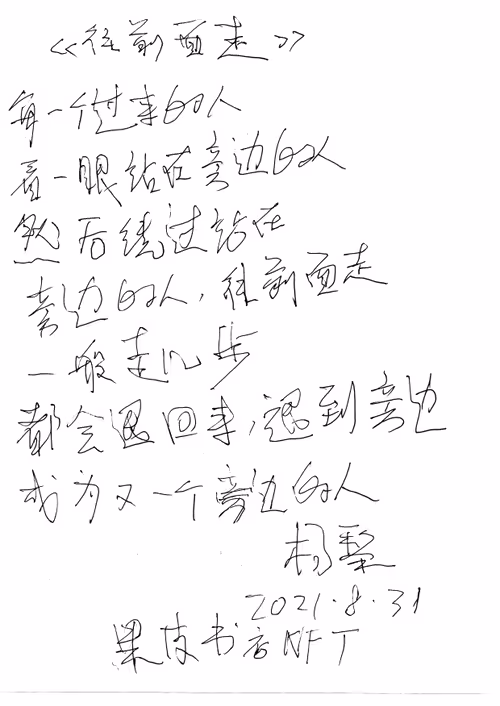 《往前面走》
每一个过来的人
看一眼站在旁边的人
然后绕过站在
旁边的人，往前面走
一般走几步
都会退回来，退到旁边
成为又一个旁边的人
杨黎
2021.8.31
果皮书店NFT